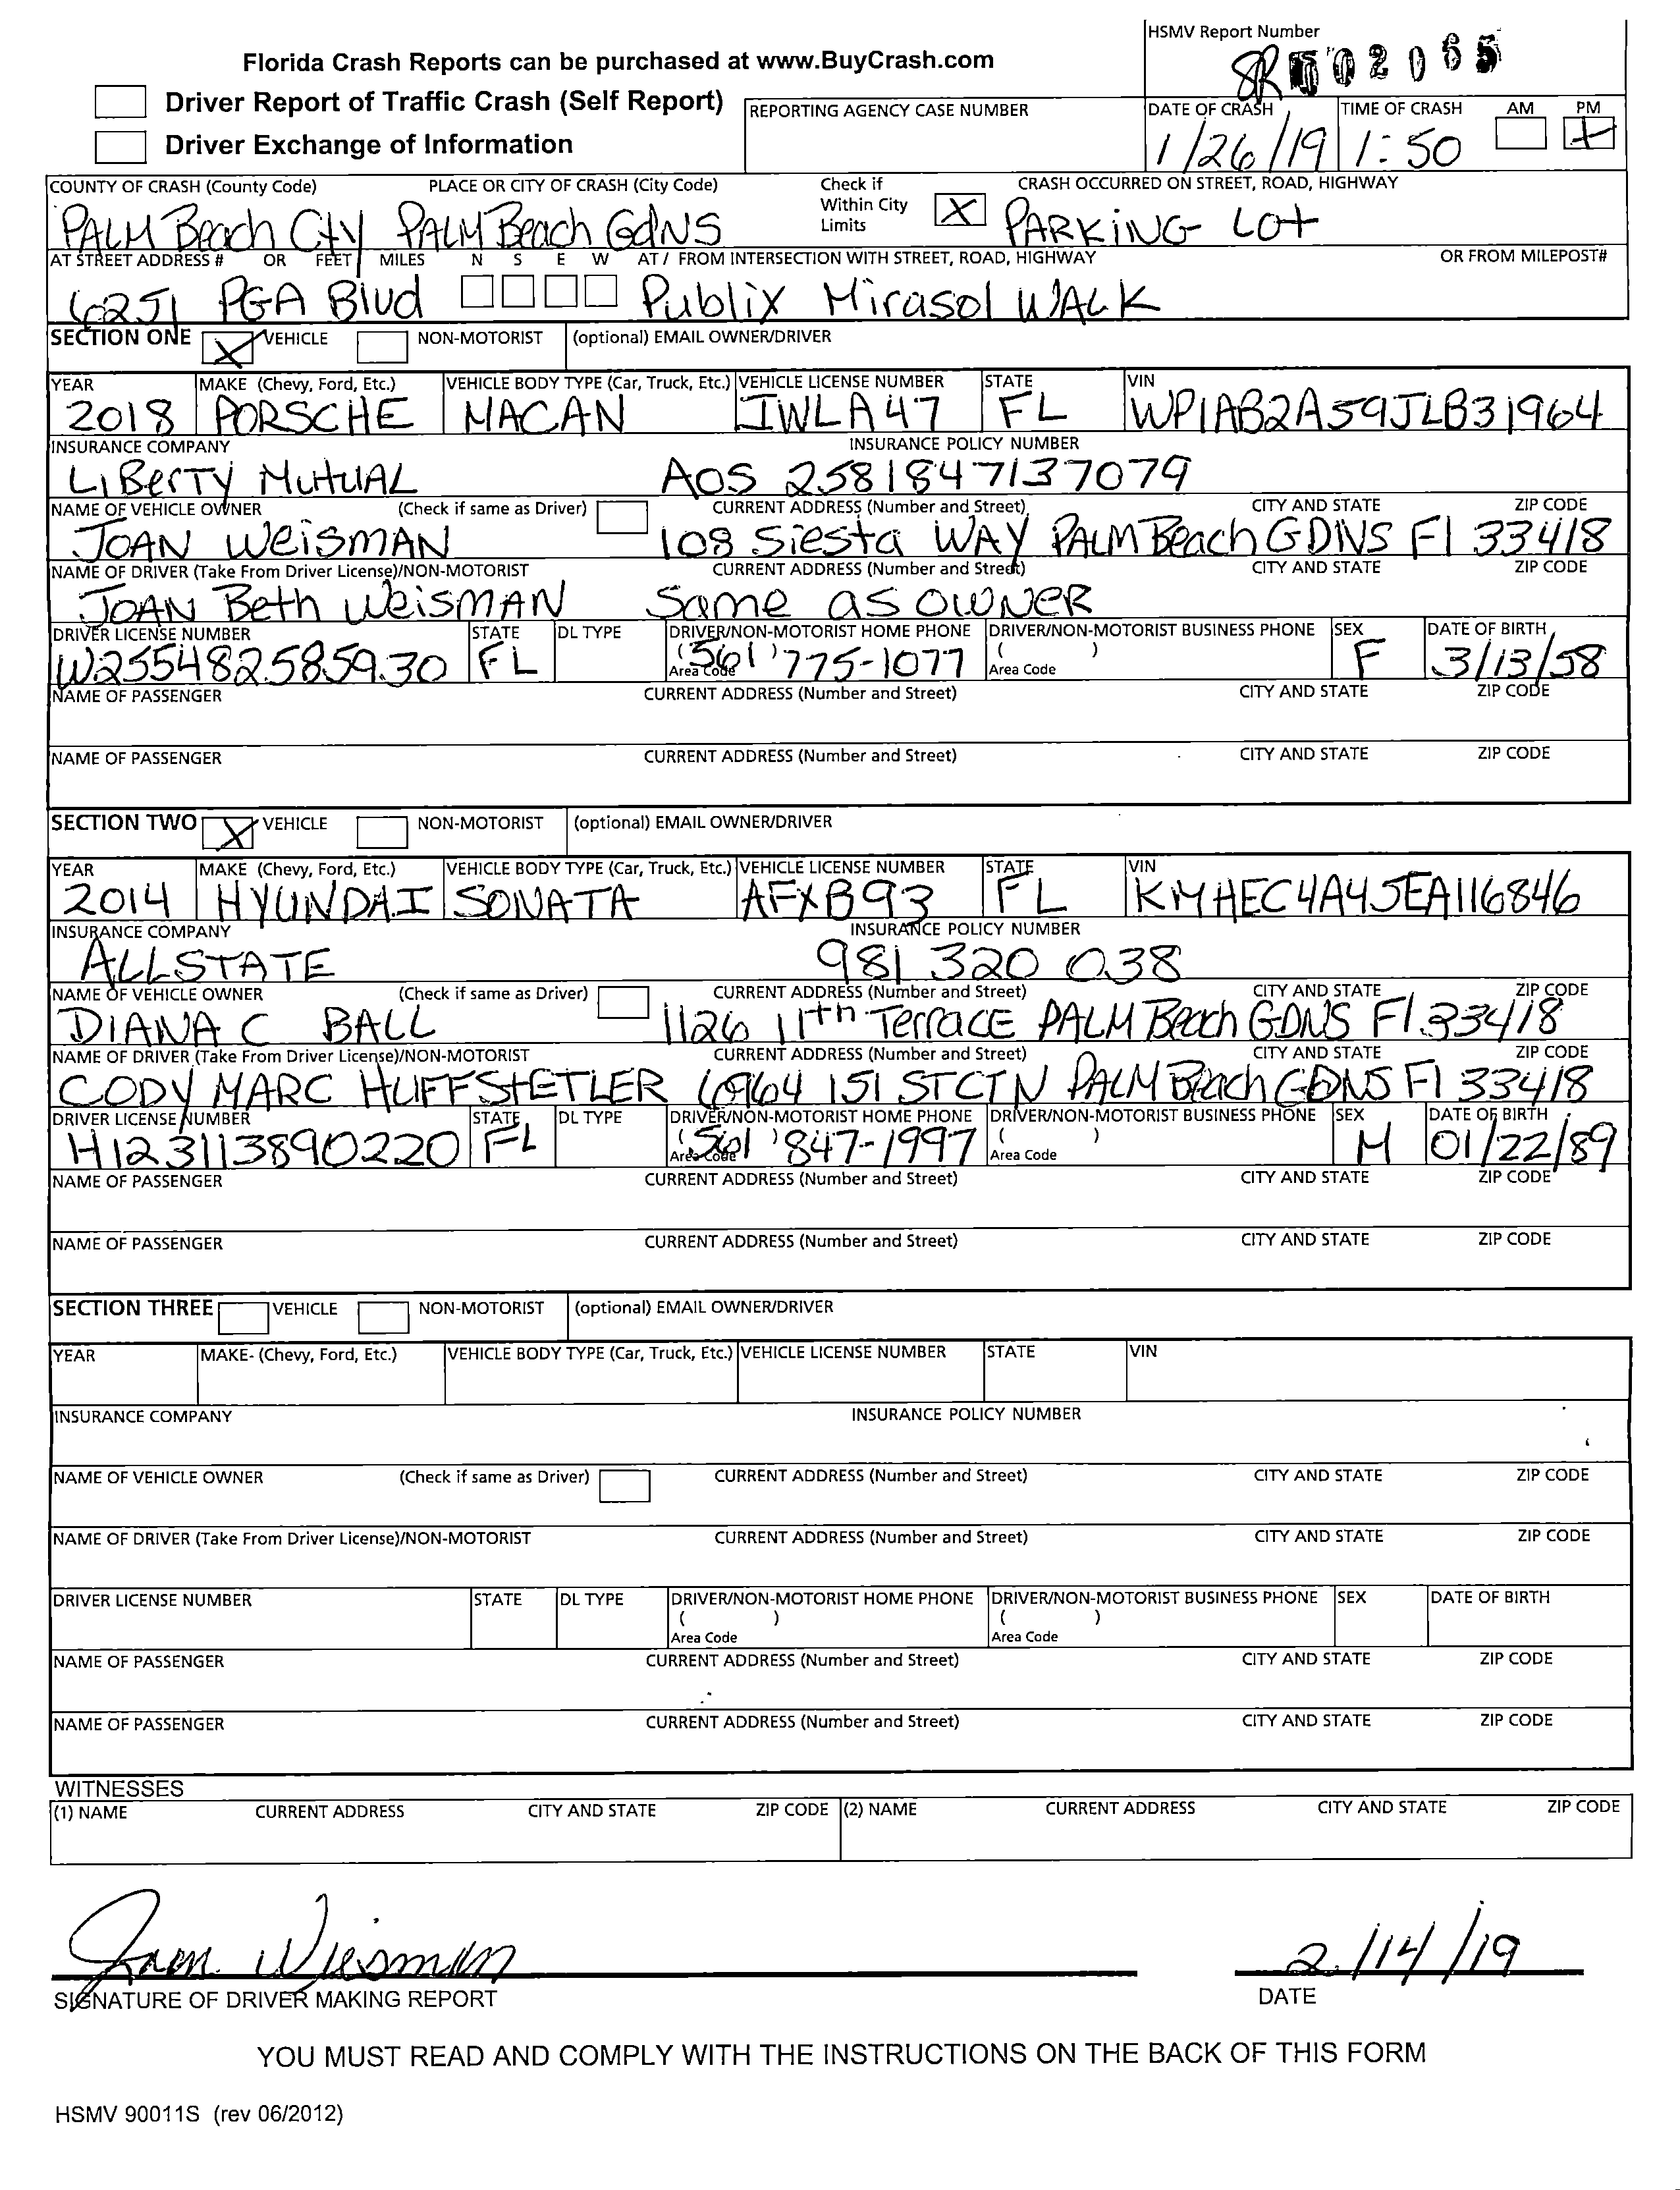 HSMV Report Number
Florida Crash Reports can be purchased at www.BuyCrash.com
SR 502065
Driver Report of Traffic Crash (Self Report)
REPORTING AGENCY CASE NUMBER DATE OF CRASH TIME OF CRASH AM PM
1/26/19 1:50 X
Driver Exchange of Information
COUNTY OF CRASH (County Code) PLACE OR CITY OF CRASH (City Code) Check if Within City Limits X CRASH OCCURRED ON STREET, ROAD, HIGHWAY
PALM Beach Cty PALM Beach GdNS PARKiNG Lot
AT STREET ADDRESS # OR FEET MILES N S E W AT / FROM INTERSECTION WITH STREET, ROAD, HIGHWAY OR FROM MILEPOST#
6251 PGA Blvd Publix Mirasol WALK
SECTION ONE X VEHICLE NON-MOTORIST (optional) EMAIL OWNER/DRIVER
YEAR MAKE (Chevy, Ford, Etc.) VEHICLE BODY TYPE (Car, Truck, Etc.) VEHICLE LICENSE NUMBER STATE VIN
2018 PORSCHE MACAN IWLA47 FL WP1AB2A59JLB31964
INSURANCE COMPANY INSURANCE POLICY NUMBER
LiBerTY MutUAL AOS 2581847137079
NAME OF VEHICLE OWNER (Check if same as Driver) CURRENT ADDRESS (Number and Street) CITY AND STATE ZIP CODE
JOAN WeisMAN 108 Siesta WAY PALM Beach GDNS Fl 33418
NAME OF DRIVER (Take From Driver License)/NON-MOTORIST CURRENT ADDRESS (Number and Street) CITY AND STATE ZIP CODE
JOAN Beth WeisMAN Same as OWNER
DRIVER LICENSE NUMBER STATE DL TYPE DRIVER/NON-MOTORIST HOME PHONE DRIVER/NON-MOTORIST BUSINESS PHONE SEX DATE OF BIRTH
W255482585930 FL (561) 775-1077 ( ) F 3/13/58
Area Code Area Code
NAME OF PASSENGER CURRENT ADDRESS (Number and Street) CITY AND STATE ZIP CODE
NAME OF PASSENGER CURRENT ADDRESS (Number and Street) CITY AND STATE ZIP CODE
SECTION TWO X VEHICLE NON-MOTORIST (optional) EMAIL OWNER/DRIVER
YEAR MAKE (Chevy, Ford, Etc.) VEHICLE BODY TYPE (Car, Truck, Etc.) VEHICLE LICENSE NUMBER STATE VIN
2014 HYUNDAI SONATA AFXB93 FL KMHEC4A45EA116846
INSURANCE COMPANY INSURANCE POLICY NUMBER
ALLSTATE 981 320 038
NAME OF VEHICLE OWNER (Check if same as Driver) CURRENT ADDRESS (Number and Street) CITY AND STATE ZIP CODE
DIANA C BALL 1126 11th Terrace PALM Beach GDNS Fl 33418
NAME OF DRIVER (Take From Driver License)/NON-MOTORIST CURRENT ADDRESS (Number and Street) CITY AND STATE ZIP CODE
CODY MARC HUFFStETLER 6964 151 ST CT N PALM Beach GDNS Fl 33418
DRIVER LICENSE NUMBER STATE DL TYPE DRIVER/NON-MOTORIST HOME PHONE DRIVER/NON-MOTORIST BUSINESS PHONE SEX DATE OF BIRTH
H123113890220 FL (561) 847-1997 ( ) M 01/22/89
Area Code Area Code
NAME OF PASSENGER CURRENT ADDRESS (Number and Street) CITY AND STATE ZIP CODE
NAME OF PASSENGER CURRENT ADDRESS (Number and Street) CITY AND STATE ZIP CODE
SECTION THREE VEHICLE NON-MOTORIST (optional) EMAIL OWNER/DRIVER
YEAR MAKE- (Chevy, Ford, Etc.) VEHICLE BODY TYPE (Car, Truck, Etc.) VEHICLE LICENSE NUMBER STATE VIN
INSURANCE COMPANY INSURANCE POLICY NUMBER
NAME OF VEHICLE OWNER (Check if same as Driver) CURRENT ADDRESS (Number and Street) CITY AND STATE ZIP CODE
NAME OF DRIVER (Take From Driver License)/NON-MOTORIST CURRENT ADDRESS (Number and Street) CITY AND STATE ZIP CODE
DRIVER LICENSE NUMBER STATE DL TYPE DRIVER/NON-MOTORIST HOME PHONE DRIVER/NON-MOTORIST BUSINESS PHONE SEX DATE OF BIRTH
( ) ( )
Area Code Area Code
NAME OF PASSENGER CURRENT ADDRESS (Number and Street) CITY AND STATE ZIP CODE
NAME OF PASSENGER CURRENT ADDRESS (Number and Street) CITY AND STATE ZIP CODE
WITNESSES
(1) NAME CURRENT ADDRESS CITY AND STATE ZIP CODE (2) NAME CURRENT ADDRESS CITY AND STATE ZIP CODE
Joan Wiesman 2/14/19
SIGNATURE OF DRIVER MAKING REPORT DATE
YOU MUST READ AND COMPLY WITH THE INSTRUCTIONS ON THE BACK OF THIS FORM
HSMV 90011S (rev 06/2012)